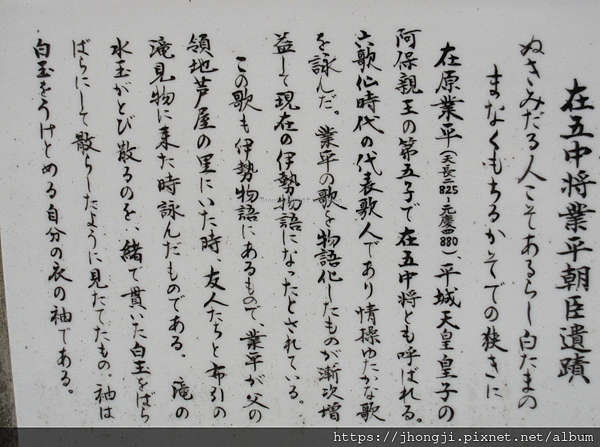 在五中将業平朝臣遺蹟
ぬきみだる人こそあるらし白たまの
まなくもちるかそでの狭きに
在原業平(天長二825~元慶四880)、平城天皇皇子の
阿保親王の第五子で在五中将とも呼ばれる。
六歌仙時代の代表歌人であり情操ゆたかな歌
を詠んだ。業平の歌を物語化したものが漸次増
益して現在の伊勢物語になったとされている。
この歌も伊勢物語にあるもので、業平が父の
領地芦屋の里にいた時、友人たちと布引の
滝見物に来た時詠んだものである。滝の
水玉がとび散るのを、緒で貫いた白玉をばら
ばらにして散らしたように見たてたもの。袖は
白玉をうけとめる自分の衣の袖である。
https://jhongji.pixnet.net/album